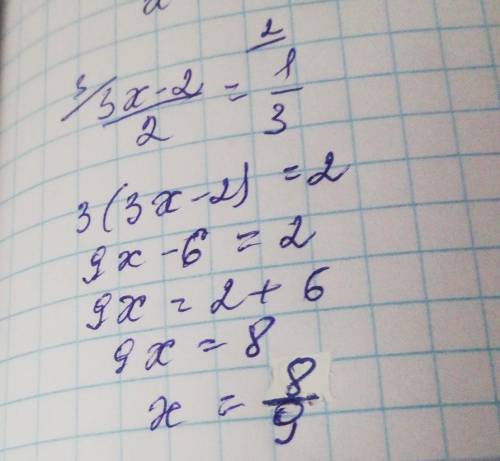 3/ 3x-2/2 = 2/ 1/3
3(3x-2) = 2
9x-6 = 2
9x = 2+6
9x = 8
x = 8/9